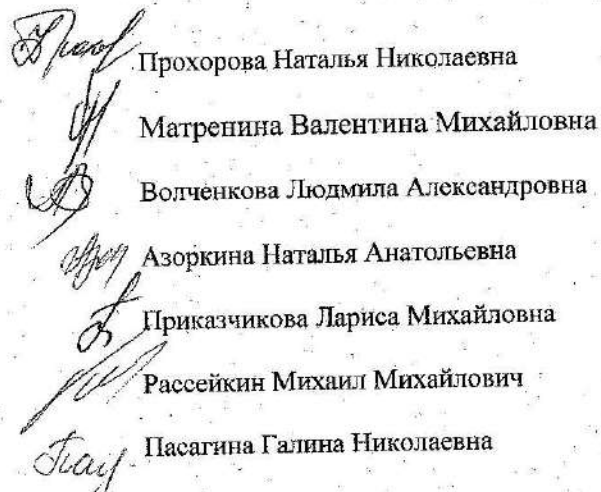 Прохорова Наталья Николаевна
Матренина Валентина Михайловна
Волченкова Людмила Александровна
Азоркина Наталья Анатольевна
Приказчикова Лариса Михайловна
Рассейкин Михаил Михайлович
Пасагина Галина Николаевна